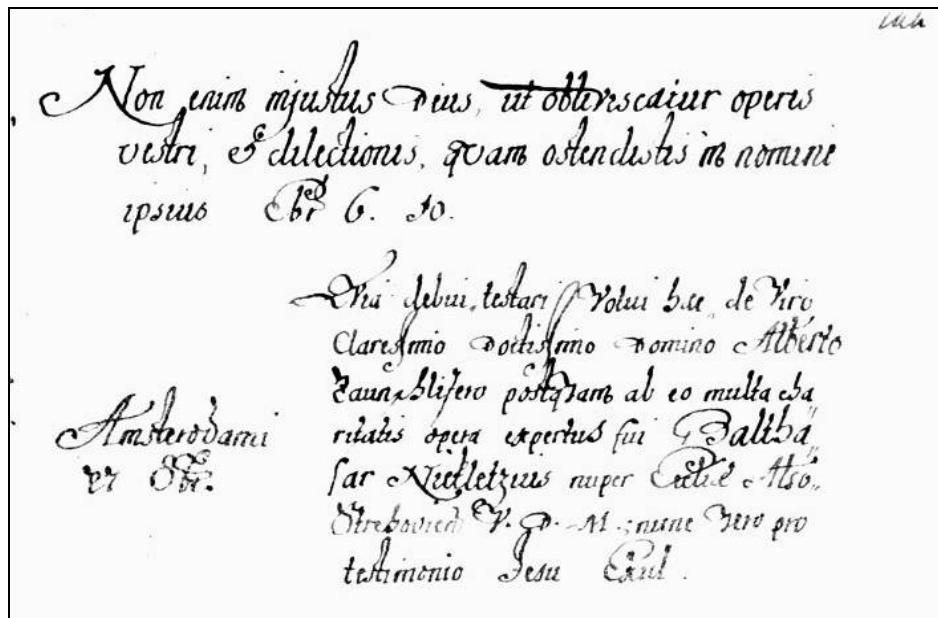 Non enim injustus Deus, ut obliviscatur operis
vestri, & dilectionis, quam ostendistis in nomine
ipsius Ebr 6. 10.
Qvia debui, testari volui hæc, de Viro
Claressimo Doctissimo Domino Alberto
postqvam ab eo multa cha
ritatis opera expertus fui Baltha„
sar Nicletzius nuper Eccliæ Alsó„
V. D. M.; nunc Vero pro
testimonio Jesu Exul.
Amsterodami
Obr.